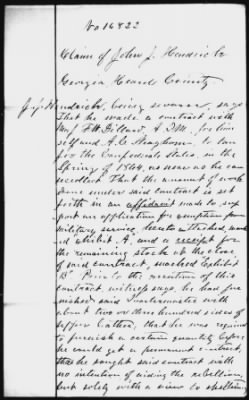 No 16822
Claim of John J. Hendricks
Georgia Heard County
J. J. Hendricks, being sworn, says
that he made a contract with
Maj. F. W. Dillard, A. Q. M. for him
self and A. C. to tan
for the Confederate States, in the
Spring of 1864, as near as he can
recollect That the amount of work
done under said contract is set
forth in an affidavit made to sup
port an application for exemption from
military service, hereto attached, mark
ed exhibit A, and a receipt for
the remaining stock at the close
of said contract, marked Exhibit
B. Prior to the execution of this
contract, witness says, he had fur
nished said Quartermaster with
about two or three hundred sides of
upper leather, that he was required
to furnish a certain quantity before
he could get a permanent contract,
that he sought said contract with
no intention of aiding the rebellion,
but solely with a view to